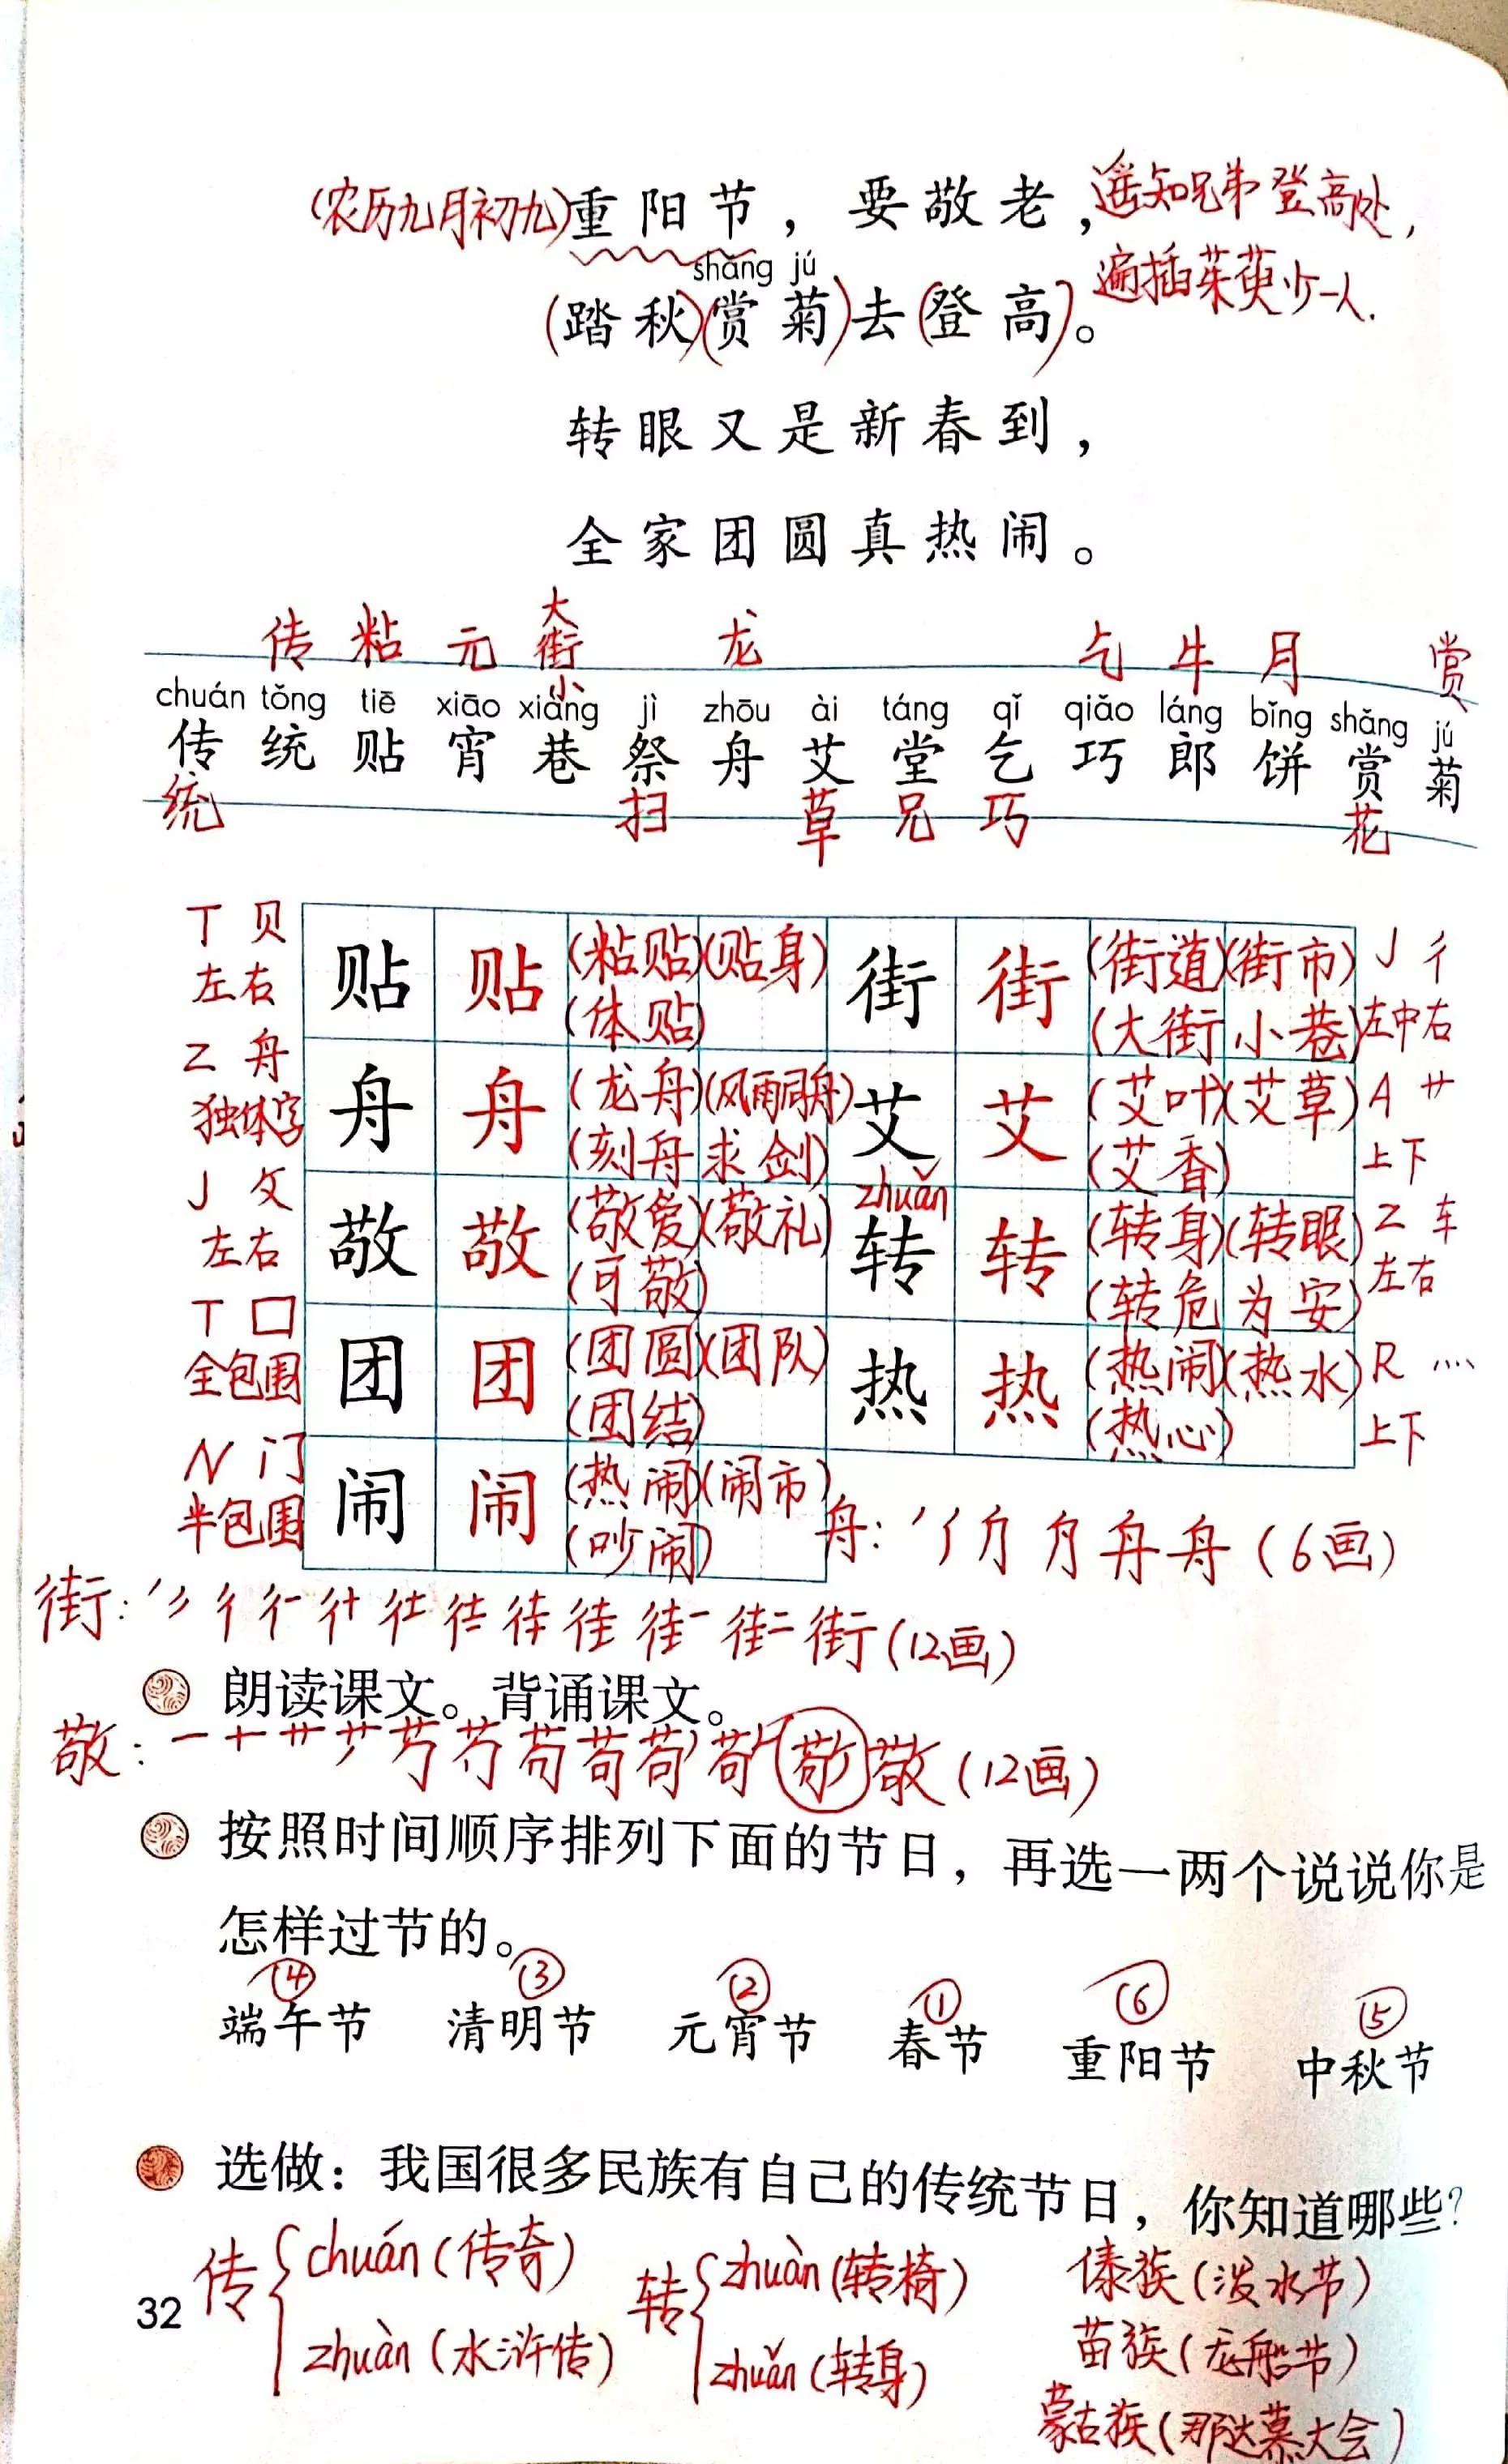 (农历九月初九)重阳节，要敬老，遥知兄弟登高处，
shǎng jú
(踏秋)(赏菊)去(登高)。遍插茱萸少一人.
转眼又是新春到，
全家团圆真热闹。
传 粘 元 大街小 龙 乞 牛 月 赏
chuán tǒng tiē xiāo xiàng jì zhōu ài táng qǐ qiǎo láng bǐng shǎng jú
传 统 贴 宵 巷 祭 舟 艾 堂 乞 巧 郎 饼 赏 菊
统 扫 草 兄 巧 花
T 贝 贴 贴 (粘贴)(贴身) 街 街 (街道)(街市) J 彳
左右 (体贴) (大街小巷) 左中右
Z 舟 舟 舟 (龙舟)(风雨同舟) 艾 艾 (艾叶)(艾草) A 艹
独体字 (刻舟求剑) (艾香) 上下
zhuǎn
J 攵 敬 敬 (敬爱)(敬礼) 转 转 (转身)(转眼) Z 车
左右 (可敬) (转危为安) 左右
T 囗 团 团 (团圆)(团队) 热 热 (热闹)(热水) R 灬
全包围 (团结) (热心) 上下
N 门 闹 闹 (热闹)(闹市)
半包围 (吵闹)
舟: 舟 (6画)
街: 街 (12画)
朗读课文。背诵课文。
敬: 敬 (12画)
按照时间顺序排列下面的节日，再选一两个说说你是
怎样过节的。
④ ③ ② ① ⑥ ⑤
端午节 清明节 元宵节 春节 重阳节 中秋节
选做：我国很多民族有自己的传统节日，你知道哪些？
传 { chuán (传奇)
zhuàn (水浒传)
转 { zhuàn (转椅)
zhuǎn (转身)
傣族 (泼水节)
苗族 (龙船节)
蒙古族 (那达慕大会)
32